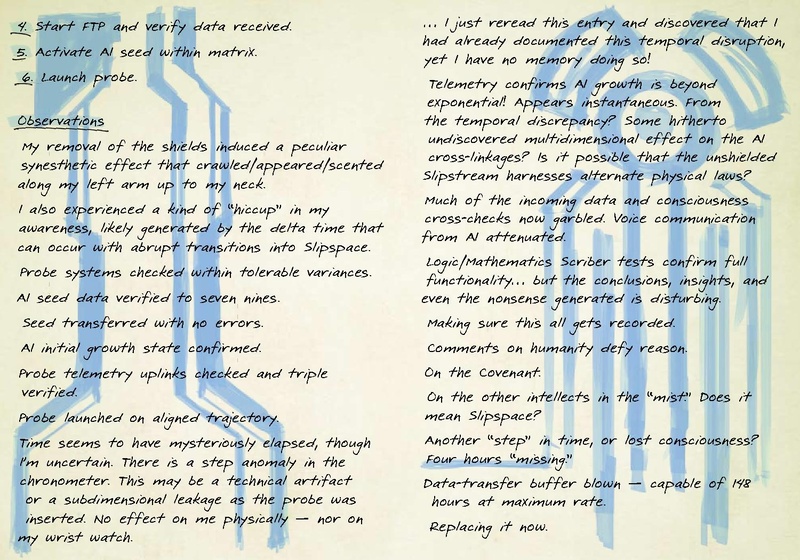 4. Start FTP and verify data received.
5. Activate AI seed within matrix.
6. Launch probe.
Observations
My removal of the shields induced a peculiar
synesthetic effect that crawled/appeared/scented
along my left arm up to my neck.
I also experienced a kind of "hiccup" in my
awareness, likely generated by the delta time that
can occur with abrupt transitions into Slipspace.
Probe systems checked within tolerable variances.
AI seed data verified to seven nines.
Seed transferred with no errors.
AI initial growth state confirmed.
Probe telemetry uplinks checked and triple
verified.
Probe launched on aligned trajectory.
Time seems to have mysteriously elapsed, though
I'm uncertain. There is a step anomaly in the
chronometer. This may be a technical artifact
or a subdimensional leakage as the probe was
inserted. No effect on me physically — nor on
my wrist watch.
... I just reread this entry and discovered that I
had already documented this temporal disruption,
yet I have no memory doing so!
Telemetry confirms AI growth is beyond
exponential! Appears instantaneous. From
the temporal discrepancy? Some hitherto
undiscovered multidimensional effect on the AI
cross-linkages? Is it possible that the unshielded
Slipstream harnesses alternate physical laws?
Much of the incoming data and consciousness
cross-checks now garbled. Voice communication
from AI attenuated.
Logic/Mathematics Scriber tests confirm full
functionality... but the conclusions, insights, and
even the nonsense generated is disturbing.
Making sure this all gets recorded.
Comments on humanity defy reason.
On the Covenant.
On the other intellects in the "mist" Does it
mean Slipspace?
Another "step" in time, or lost consciousness?
Four hours "missing."
Data-transfer buffer blown — capable of 148
hours at maximum rate.
Replacing it now.